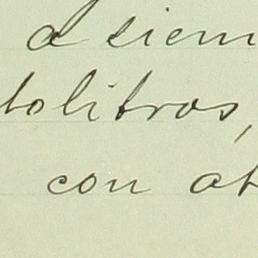 a siem
tolitros,
con ot